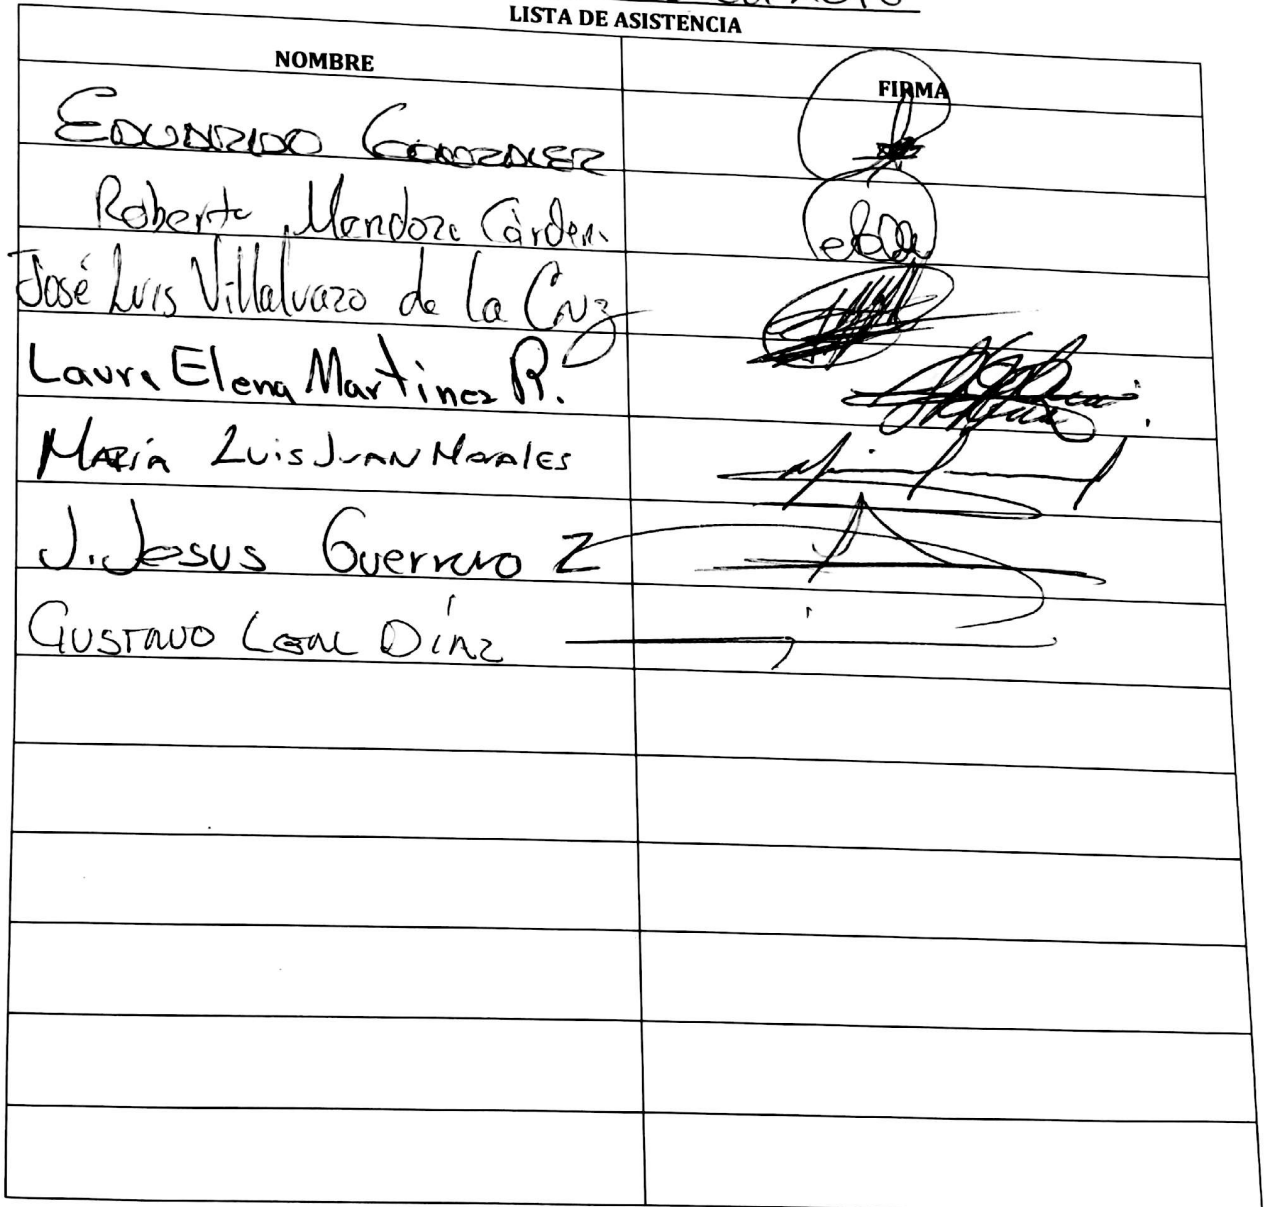 LISTA DE ASISTENCIA
NOMBRE
FIRMA
EDUARDO GONZALEZ
Roberto Mendoza Cárden.
José Luis Villalvazo de la Cruz
Laura Elena Martinez R.
MARÍA LUIS JUAN MORALES
J. Jesus Guerrero Z
GUSTAVO LEAL DÍAZ